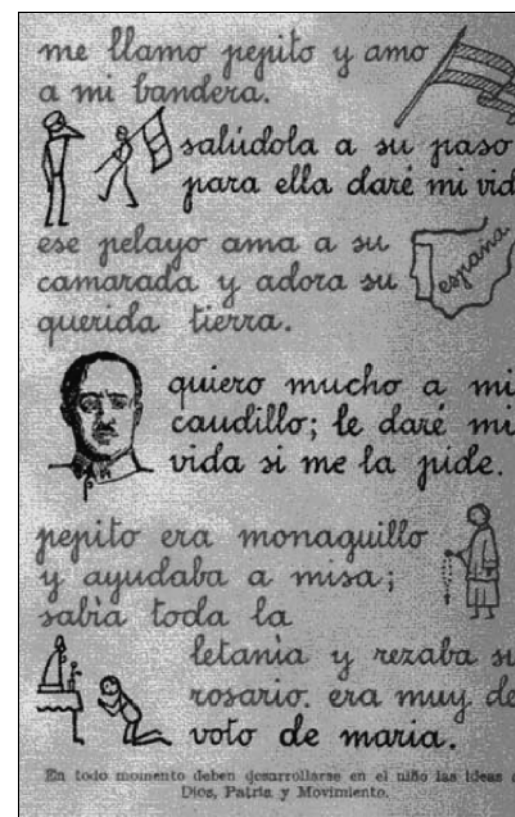 me llamo pepito y amo
a mi bandera.
salúdola a su paso
para ella daré mi vid
ese pelayo ama a su
camarada y adora su
querida tierra.
españa
quiero mucho a mi
caudillo; le daré mi
vida si me la pide.
pepito era monaguillo
y ayudaba a misa;
sabía toda la
letanía y rezaba su
rosario. era muy de
voto de maria.
En todo momento deben desarrollarse en el niño las ideas d
Dios, Patria y Movimiento.